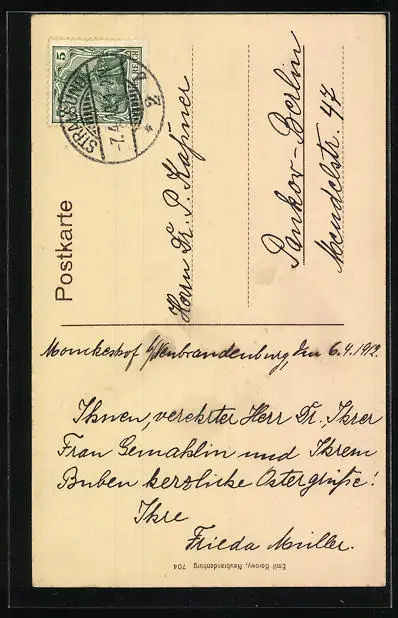 Postkarte
5
REICH
7.4.
Herrn Dr. P. Kafner
Pankow-Berlin
Mendelstr. 47
Monckeshof b/Neubrandenburg, den 6.4.1912.
Ihnen, verehrter Herr Dr. Ihrer
Frau Gemahlin und Ihrem
Buben herzliche Ostergrüße!
Ihre
Frieda Müller.
Emil Borowy, Neubrandenburg 704